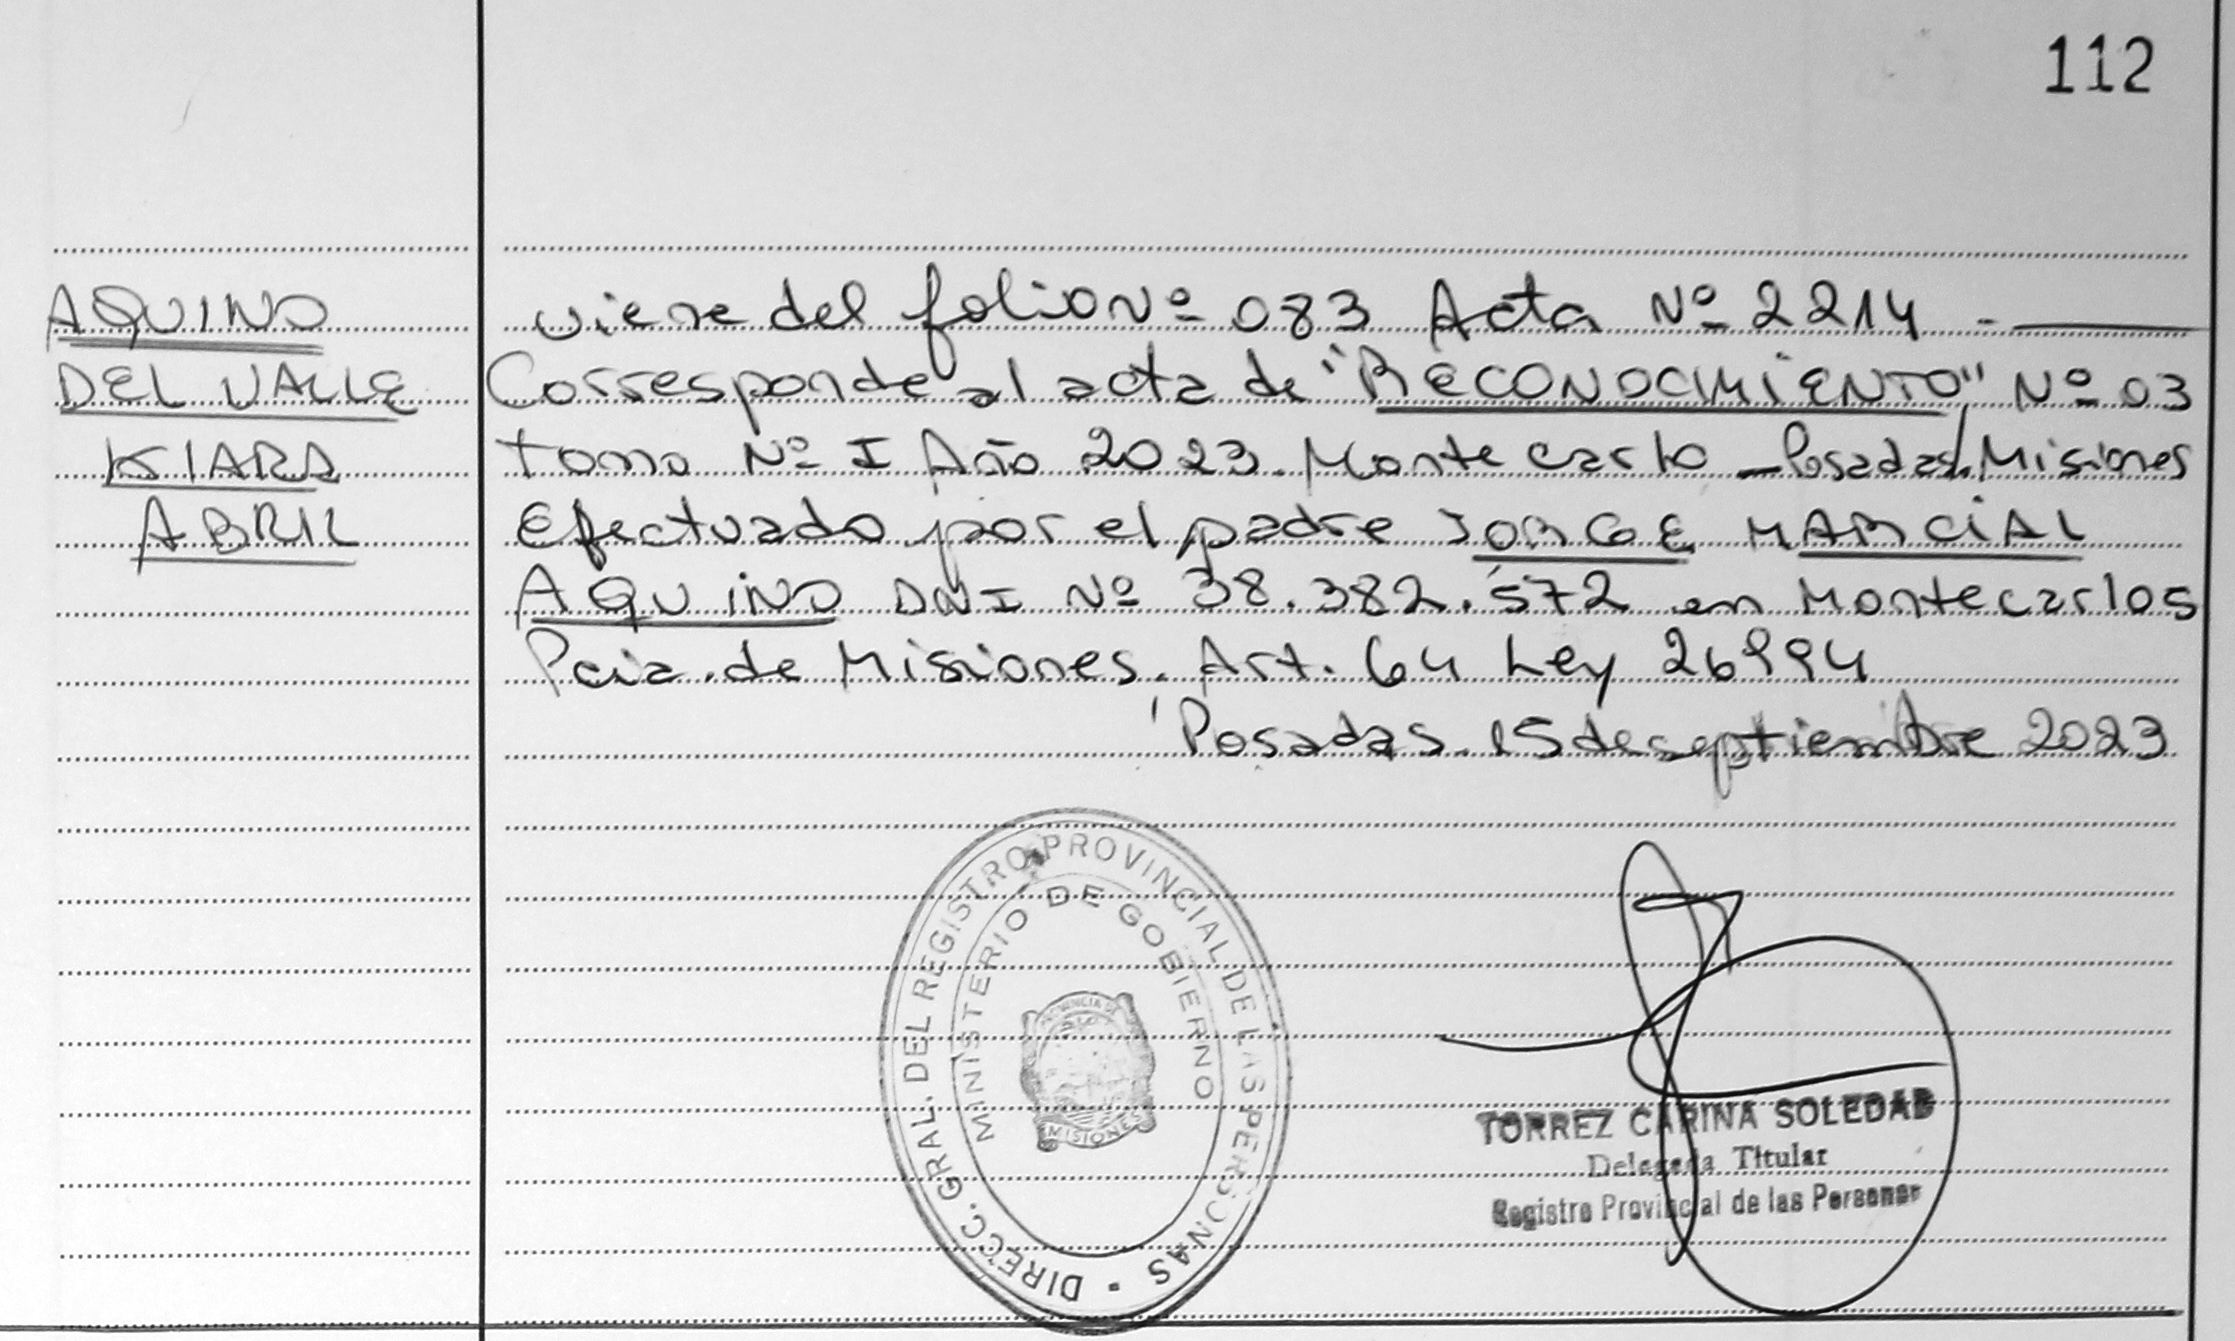 112
AQUINO
DEL VALLE
KIARA
ABRIL
viene del folio Nº 083 Acta Nº 2214 -
Corresponde al acta de "RECONOCIMIENTO" Nº 03
tomo Nº I Año 2023. Montecarlo - Posadas, Misiones
Efectuado por el padre JORGE MARCIAL
AQUINO DNI Nº 38.382.572 en Montecarlos
Pcia. de Misiones. Art. 64 Ley 26994
Posadas. 15 de septiembre 2023
DIRECC. GRAL. DEL REGISTRO PROVINCIAL DE LAS PERSONAS
MINISTERIO DE GOBIERNO
PROVINCIA DE
MISIONES
TORREZ CARINA SOLEDAD
Delegada Titular
Registro Provincial de las Personas